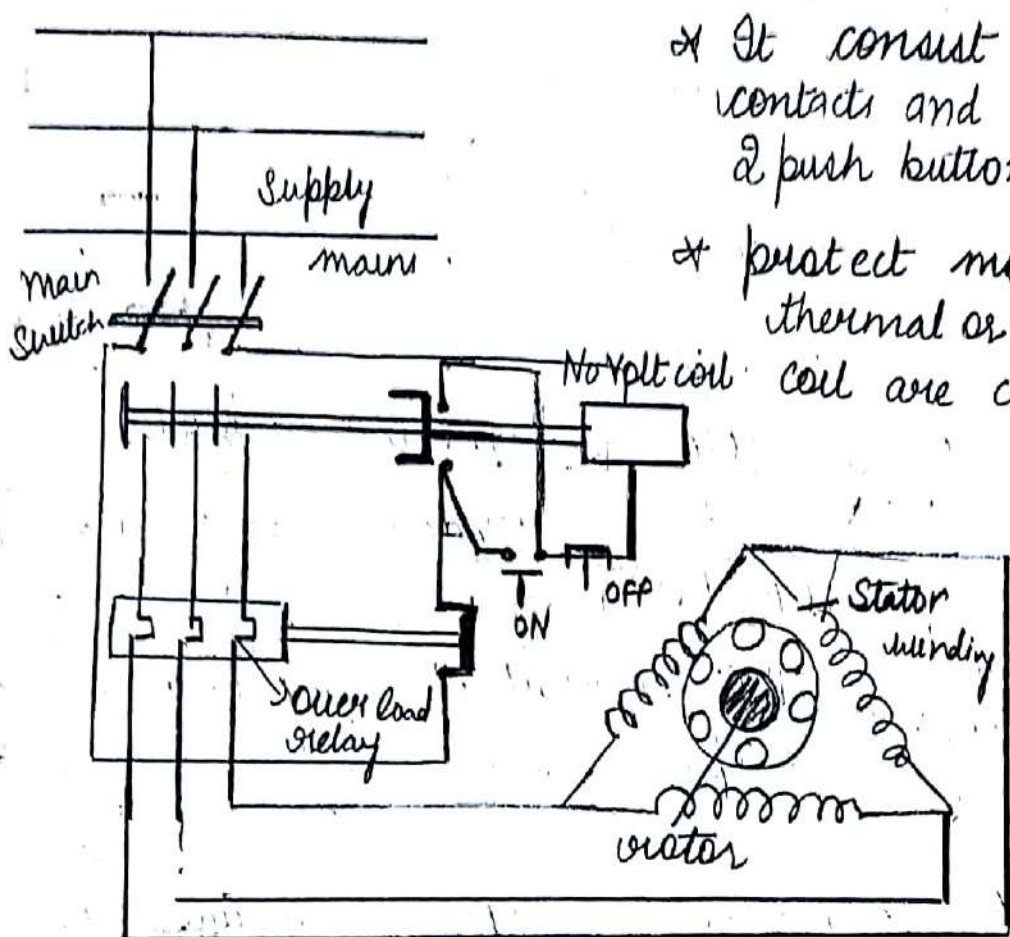 * It consist
contacts and
2 push button
* protect
thermal or
coil are
Supply
mains
main
Switch
No Volt coil
OFF
ON
Stator
winding
over load
relay
rotor